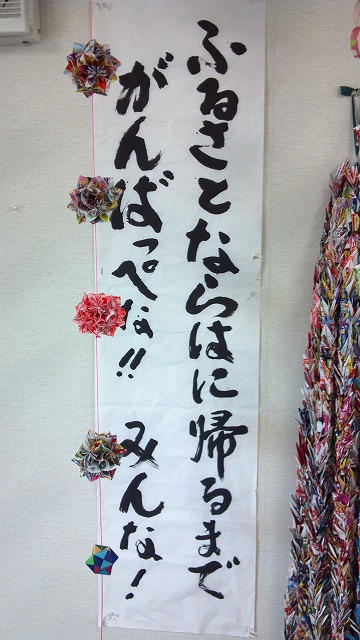 ふるさとならはに帰るまで
がんばっぺな!! みんな!